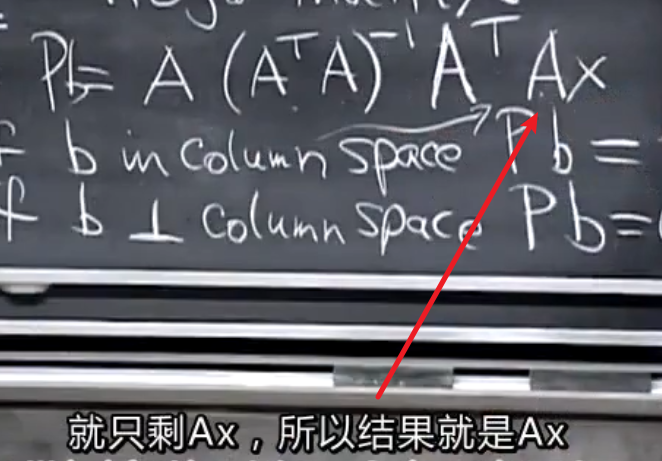 Pb= A (AᵀA)⁻¹ Aᵀ Ax
f b in column space Pb =
f b ⊥ column space Pb=
就只剩Ax，所以结果就是Ax